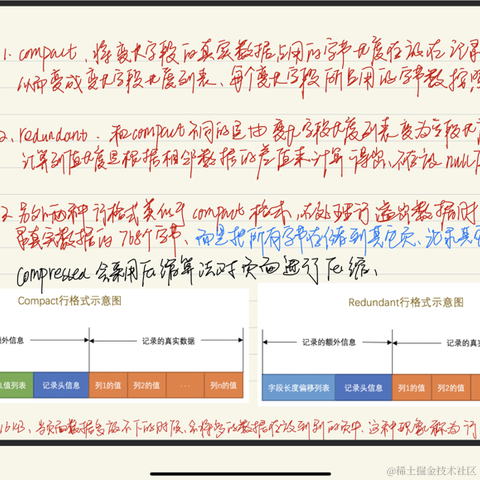 1. compact，将变长字段的真实数据占用的字节长度存放在记录
从而变成变长字段长度列表，每个变长字段所占用的字节数按照
2、redundant．和compact不同的是由变长字段长度列表变为字段长度
计算列值长度是根据相邻数据的差值来计算得出，不存放null
另外两种行格式类似于compact格式，不过处理行溢出数据时
真实数据的768个字节，而是把所有字节存储到其它页，记录其它
compressed会采用压缩算法对页面进行压缩、
Compact行格式示意图
Redundant行格式示意图
额外信息
记录的真实数据
记录的额外信息
记录的真
L值列表
记录头信息
列1的值
列2的值
...
列n的值
字段长度偏移列表
记录头信息
列1的值
列2的
16KB、当页面数据多放不下的时候、会将多的数据存放到别的页中．这种现象称为行
@稀土掘金技术社区